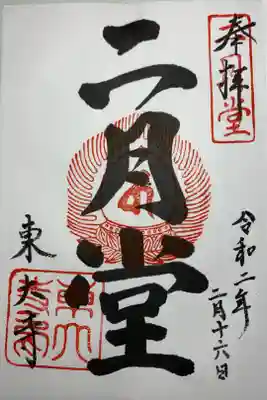 奉拝
令和二年
二月十六日
二月堂
東大寺